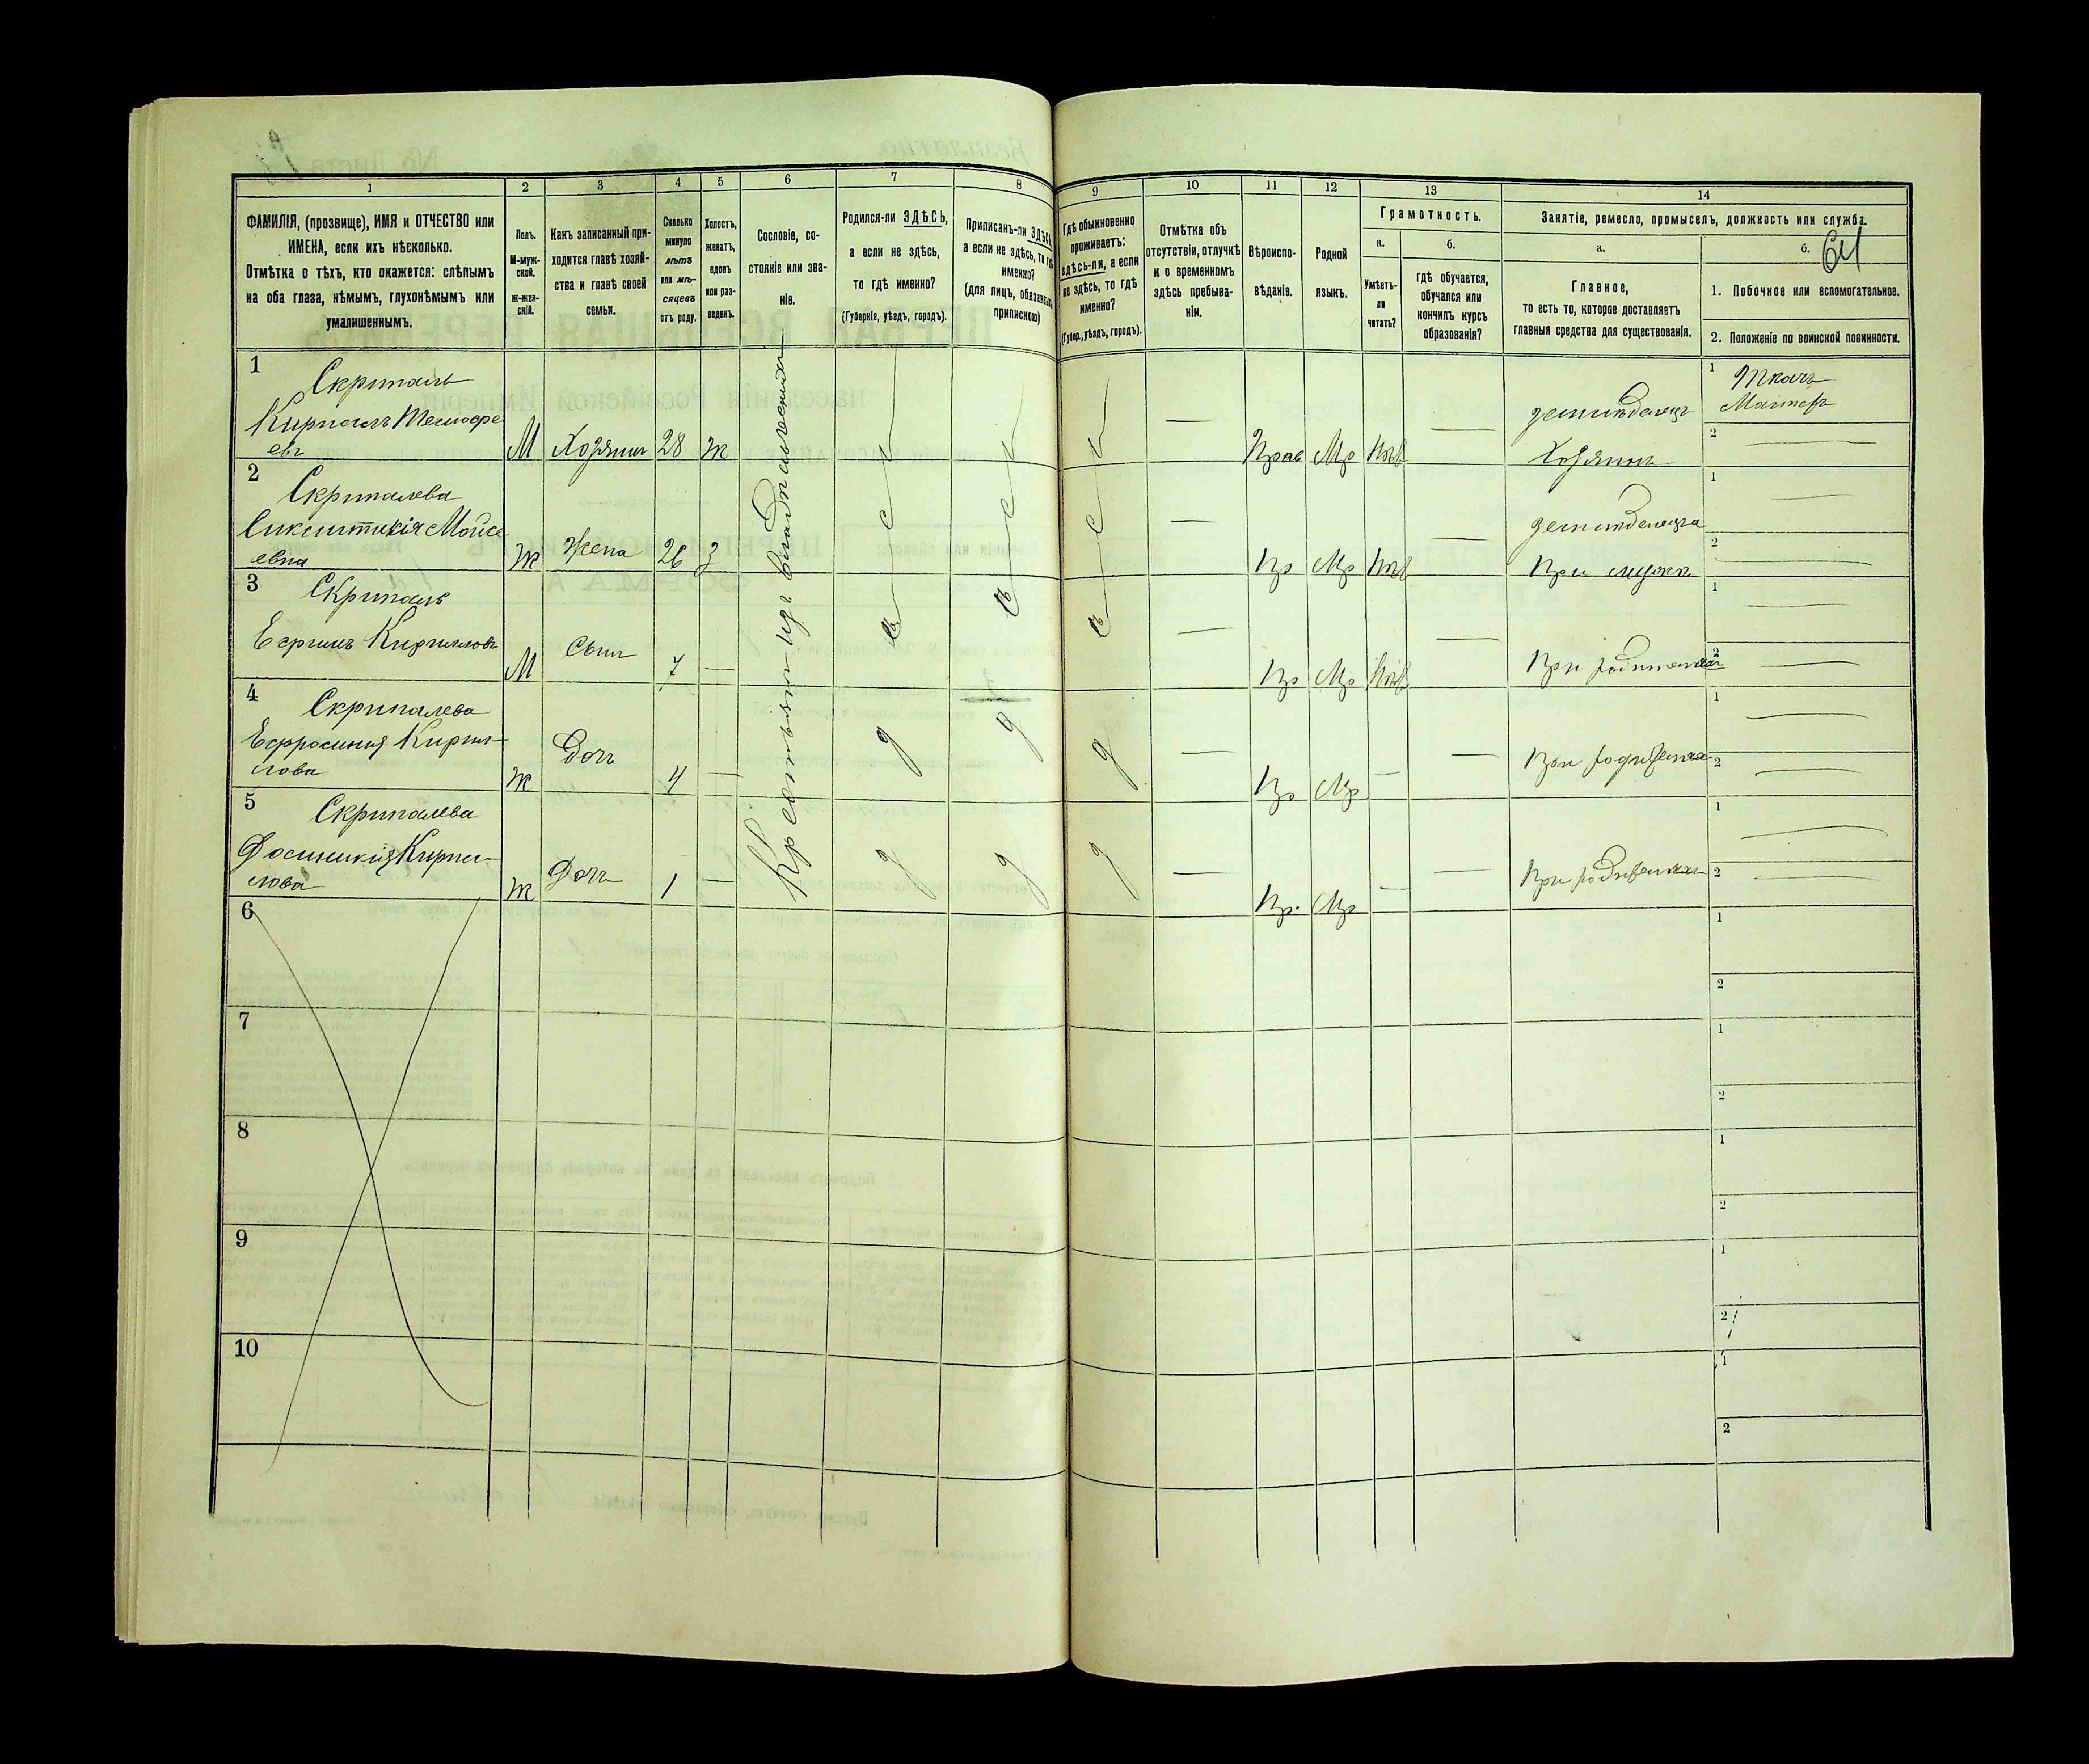 1 2 3 4 5 6 7 8 9 10 11 12 13 14
ФАМИЛІЯ, (прозвище), ИМЯ и ОТЧЕСТВО или
ИМЕНА, если ихъ нѣсколько.
Отмѣтка о тѣхъ, кто окажется: слѣпымъ
на оба глаза, нѣмымъ, глухонѣмымъ или
умалишеннымъ.
Полъ.
М-муж-
ской.
ж-жен-
скій.
Какъ записанный при-
ходится главѣ хозяй-
ства и главѣ своей
семьи.
Сколько
минуло
лѣтъ
или мѣ-
сяцевъ
отъ роду.
Холостъ,
женатъ,
вдовъ
или раз-
веденъ.
Сословіе, со-
стояніе или зва-
ніе.
Родился-ли ЗДѢСЬ,
а если не здѣсь,
то гдѣ именно?
(Губернія, уѣздъ, городъ).
Приписанъ-ли ЗДѢСЬ
а если не здѣсь, то гдѣ
именно?
(для лицъ, обязанныхъ
припискою)
Гдѣ обыкновенно
проживаетъ:
здѣсь-ли, а если
не здѣсь, то гдѣ
именно?
(Губер., уѣздъ, городъ).
Отмѣтка объ
отсутствіи, отлучкѣ
и о временномъ
здѣсь пребыва-
ніи.
Вѣроиспо-
вѣданіе.
Родной
языкъ.
Грамотность.
а.
Умѣетъ-
ли
читать?
б.
Гдѣ обучается,
обучался или
кончилъ курсъ
образованія?
Занятіе, ремесло, промыселъ, должность или служба.
а.
Главное,
то есть то, которое доставляетъ
главныя средства для существованія.
б.
64
1. Побочное или вспомогательное.
2. Положеніе по воинской повинности.
Крестьянин изъ
1
Скрипаль
Кириллъ
евъ
М Хозяинъ 28 ж
Прав Мр
Хозяинъ
1 Ткачъ
Мастеръ
2
2
Скрипалева
Мойсе
евна
ж Жена 26 з
Пр Мр
При мужѣ
1
2
3
Скрипаль
Ефимъ Кирилловъ
М Сынъ 7 —
Пр Мр
При родителяхъ
1
2
4
Скрипалева
Ефросинія Кирил-
лова
ж Дочь 4 —
Пр Мр —
При родителяхъ
1
2
5
Скрипалева
Кирил-
лова
ж Дочь 1 —
Пр. Мр —
При родителяхъ
1
2
6
1
2
7
1
2
8
1
2
9
1
2
10
1
2